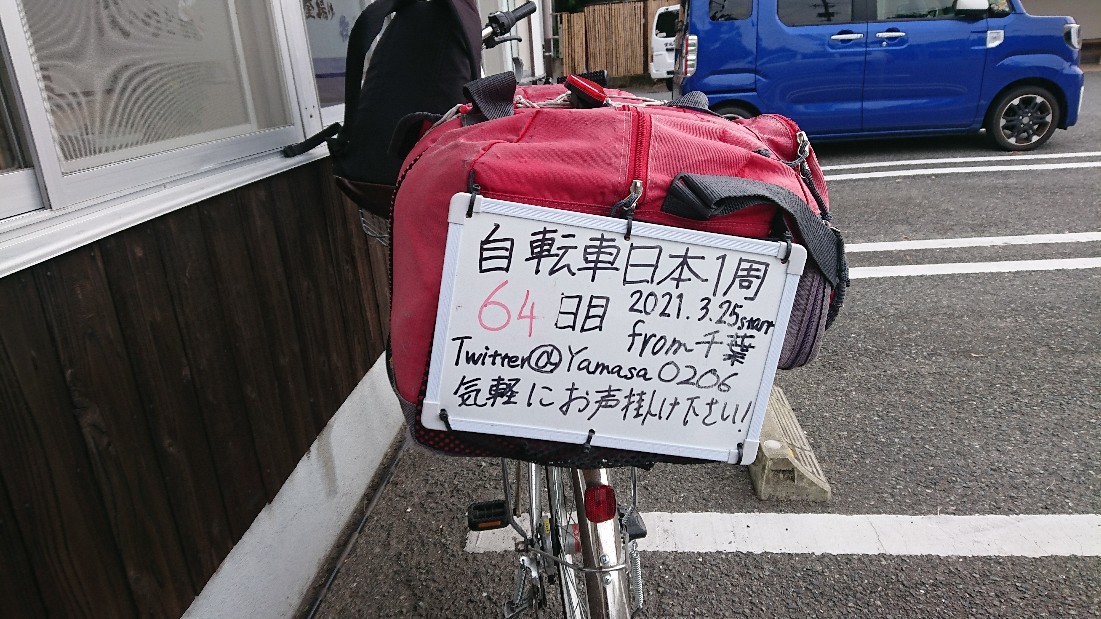 自転車日本1周
64日目 2021.3.25start
from千葉
Twitter@Yamasa0206
気軽にお声掛け下さい!